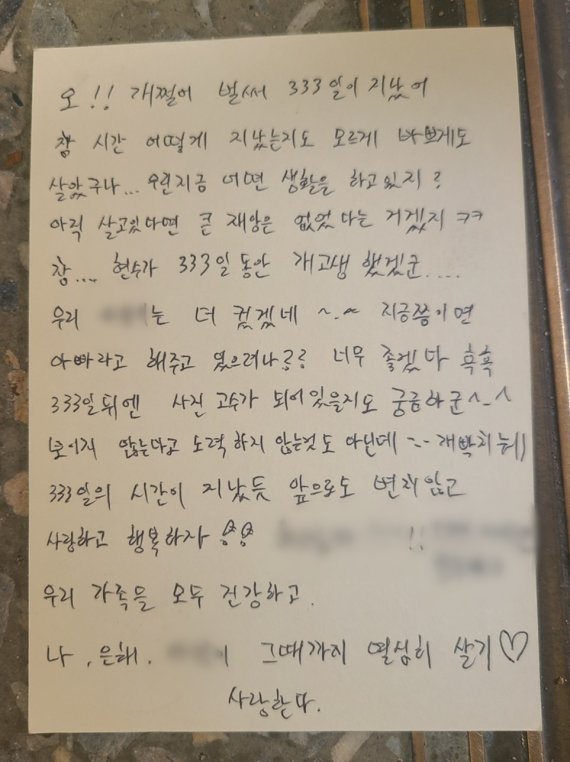 오!! 개쩔어 벌써 333일이 지났어
참 시간 어떻게 지났는지도 모르게 바쁘게도
살았구나... 우린지금 어떤 생활을 하고있지?
아직 살고있다면 큰 재앙은 없었다는 거겠지 ㅋㅋ
참.... 현수가 333일동안 개고생 했겠군....
우리 는 더 컸겠네 ~.~ 지금쯤이면
아빠라고 해주고 있으려나?? 너무 좋겠다 흑흑
333일뒤엔 사진 고수가 되어있을지도 궁금하군^-^
(보이지 않는다고 노력하지 않는것도 아닌데 -.- 개빡치네)
333일의 시간이 지났듯 앞으로도 변치않고
사랑하고 행복하자 !!
우리 가족들 모두 건강하고.
나, 은혜, 이 그때까지 열심히 살기♡
사랑한다.